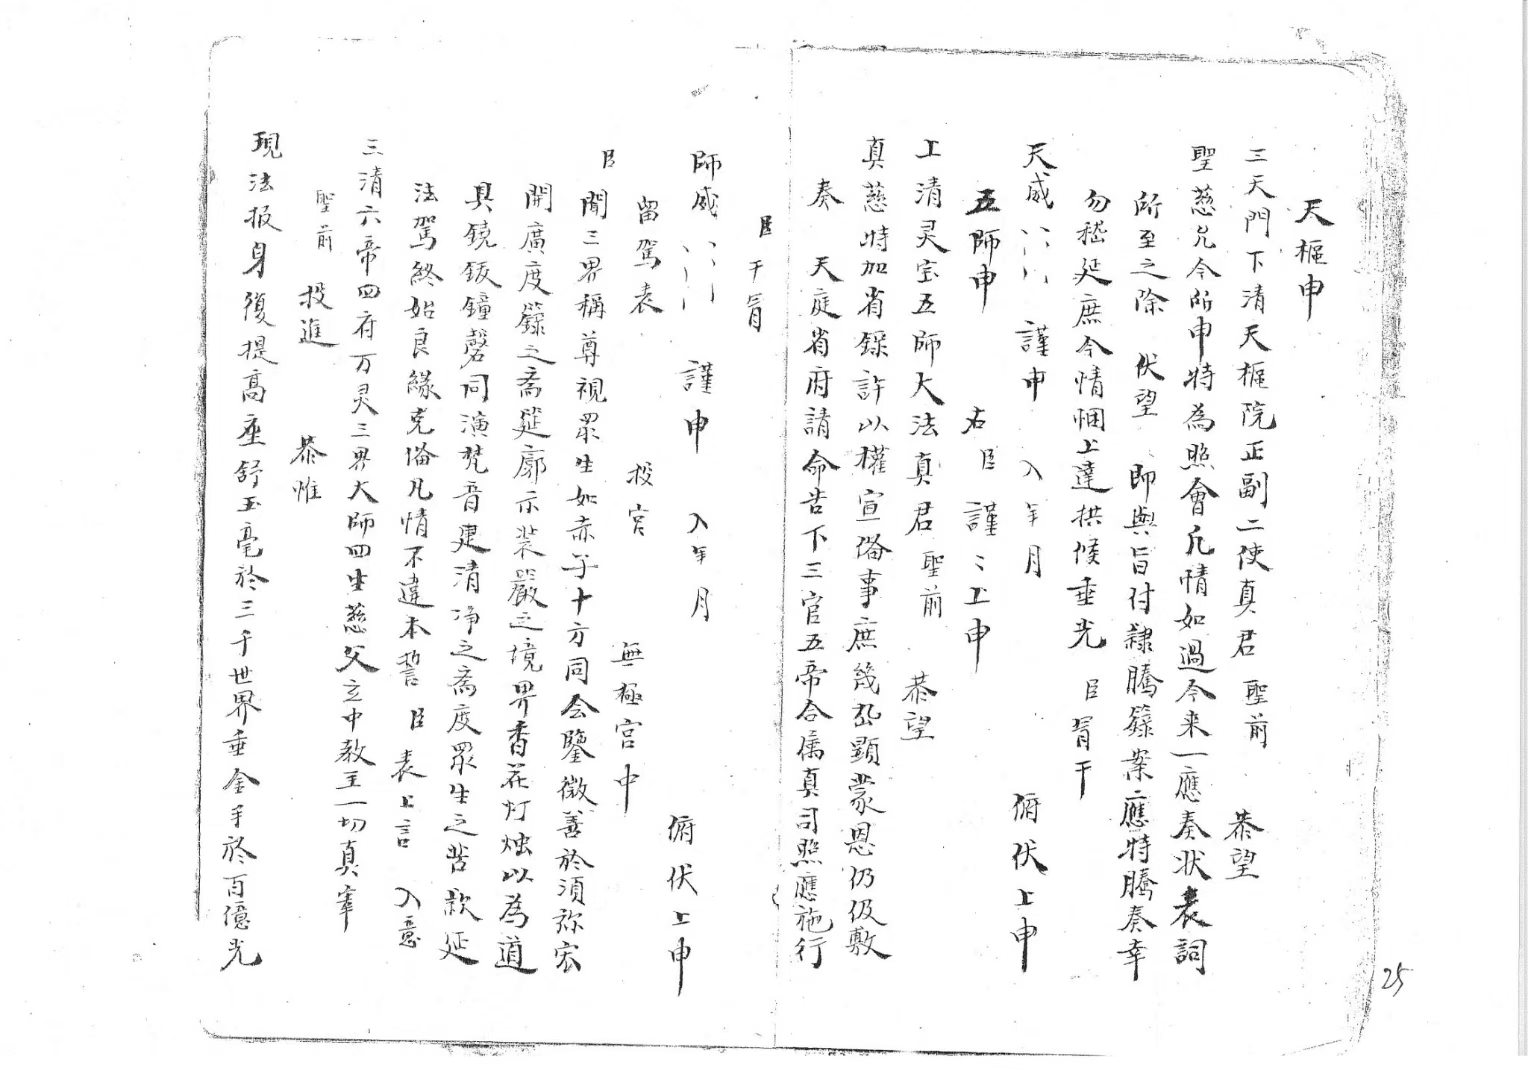 天樞申
三天門下清天樞院正副二使真君 聖前 恭望
聖慈允今所申特為照會凡情如過今来一應奏状表詞
所至之除 伏望 即與旨付隸騰籙案應特騰奏幸
勿嵇延庶今情悃上達拱候垂光 臣胃干
天威 謹申 入年月 俯伏上申
五師申 右臣謹〻上申
上清灵宝五師大法真君 聖前 恭望
真慈特加省錄許以權宣俻事庶幾丕顯蒙恩仍伋敷
奏 天庭省府請命告下三官五帝合属真司照應施行
臣干胃
師威 謹申 入年月 俯伏上申
留駕表 投宫 無極宫中
臣聞三界稱尊視眾生如赤子十方同会鑒微善於須弥宏
開廣度籙之斎筵廓示裝嚴之境界香花灯烛以為道
具鐃鈸鐘磬同演梵音建清净之斎度眾生之苦款延
法駕終始良緣克俻凡情不違本誓 臣 表上言 入意
三清六帝四府万灵三界大師四生慈父玄中教主一切真宰
聖前 投進 恭惟
現法报身復提高座舒玉毫於三千世界垂金手於百億光
25